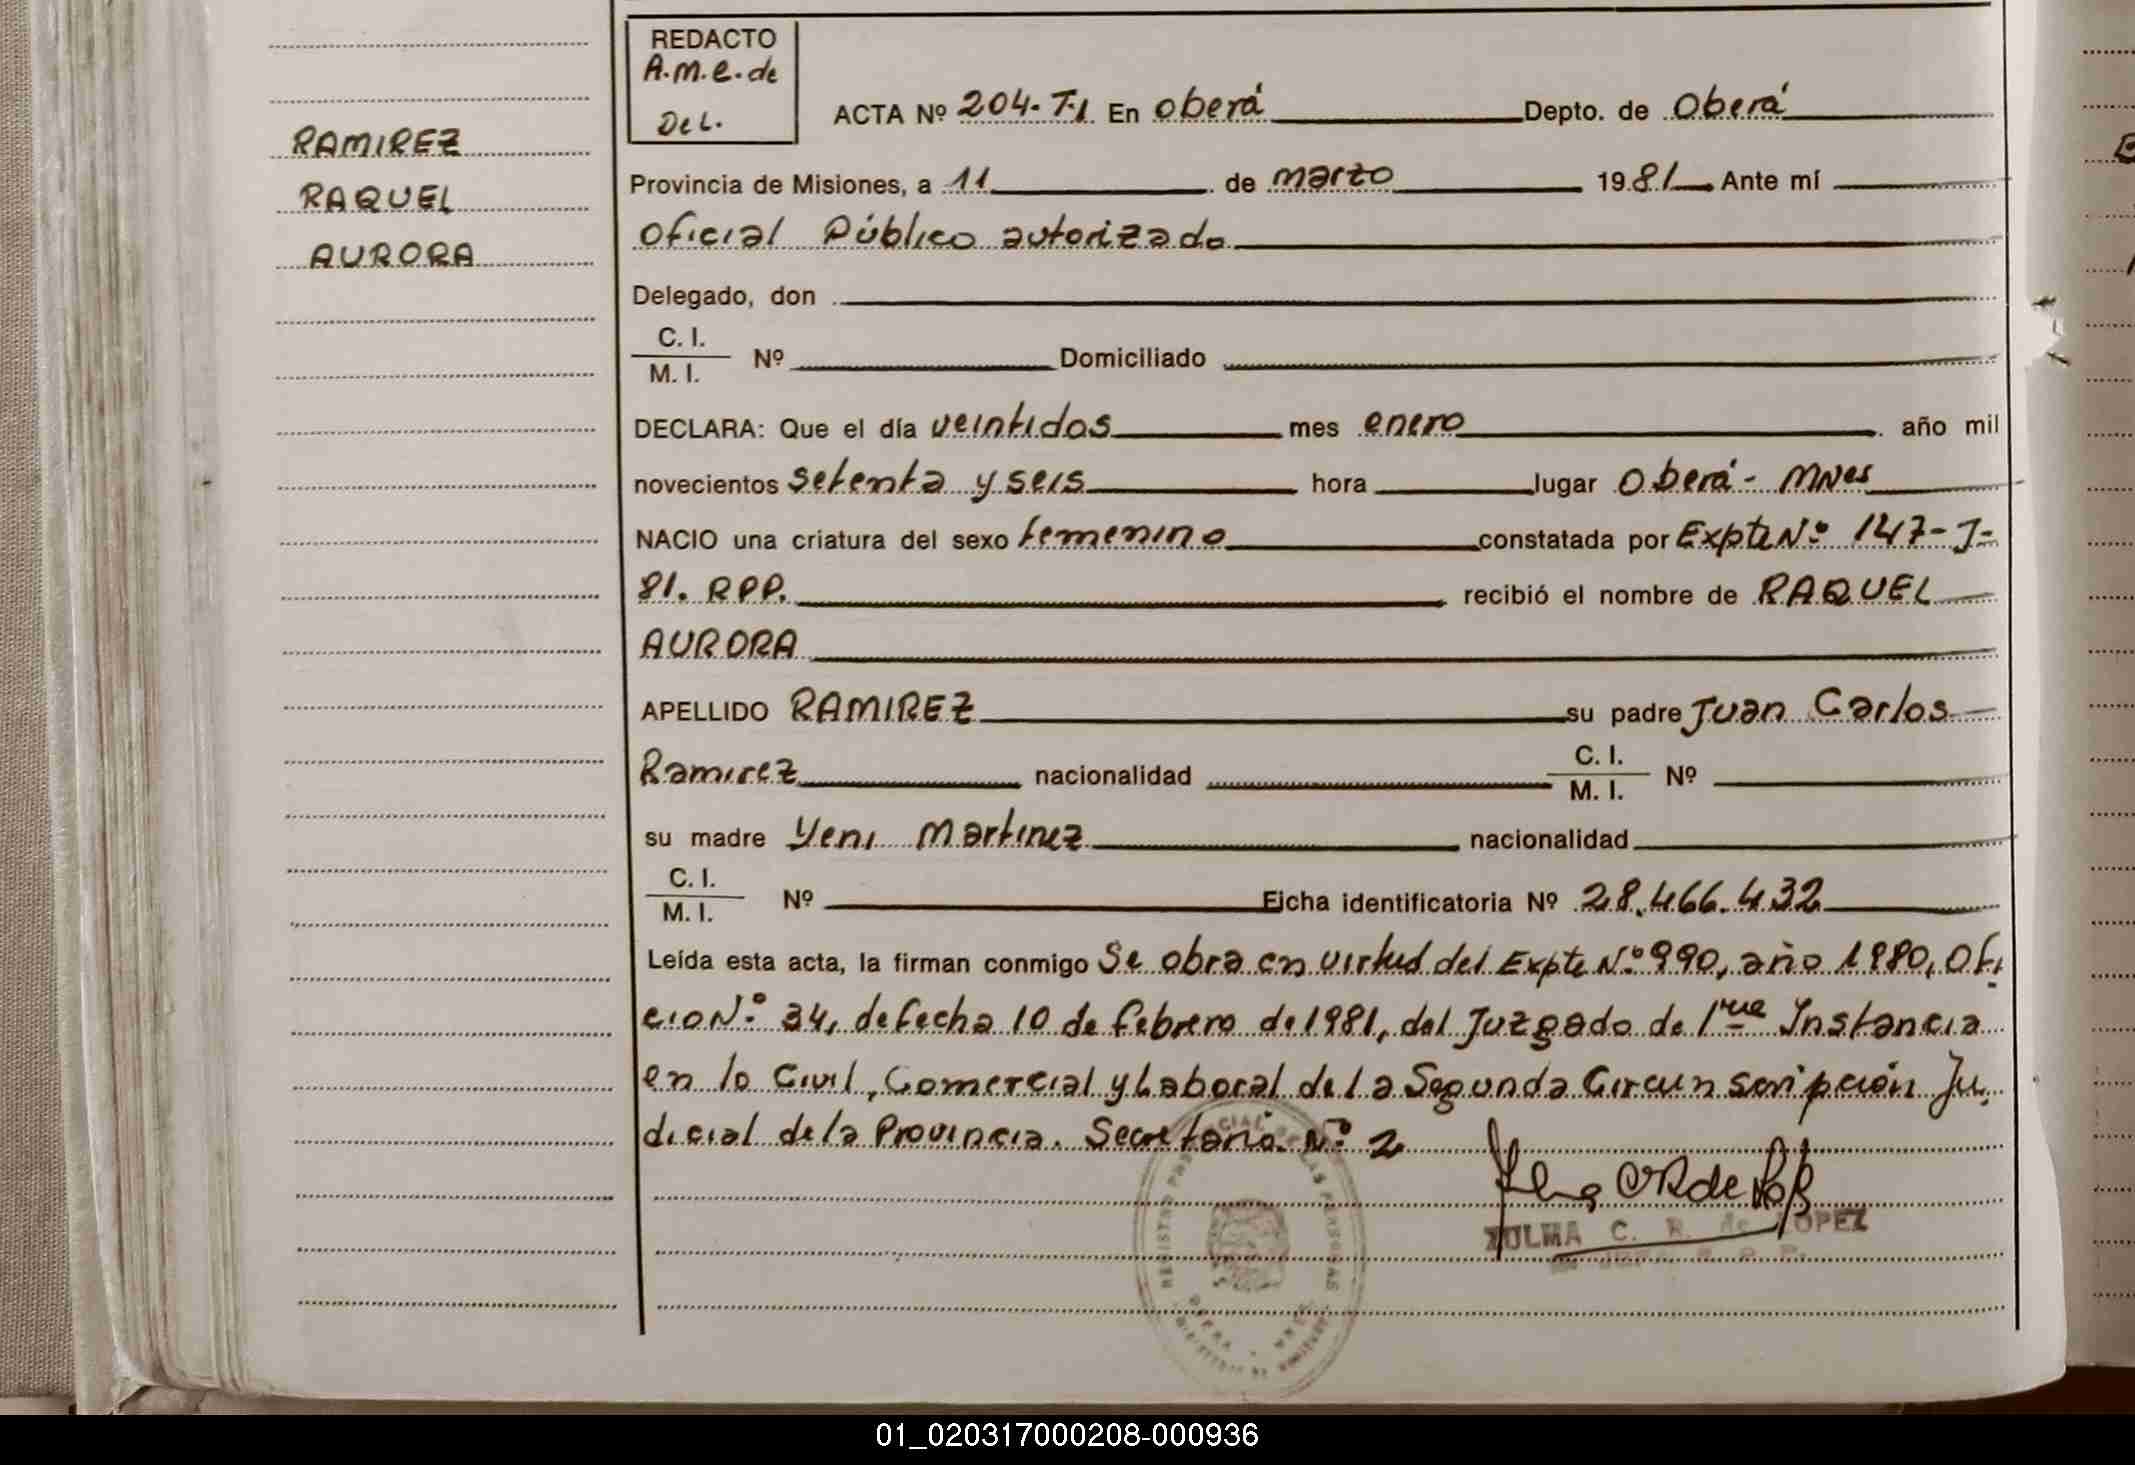 RAMIREZ
RAQUEL
AURORA
REDACTO
A.M.E. de
DEL.
ACTA Nº 204-T1 En Oberá Depto. de Oberá
Provincia de Misiones, a 11 de marzo 1981 Ante mí
Oficial Público autorizado
Delegado, don
C. I.
M. I. Nº Domiciliado
DECLARA: Que el día veintidos mes enero año mil
novecientos setenta y seis hora lugar Oberá - MNes
NACIO una criatura del sexo femenino constatada por Expte Nº 147-J-
81. RPP. recibió el nombre de RAQUEL
AURORA
APELLIDO RAMIREZ su padre Juan Carlos
Ramirez nacionalidad C. I.
M. I. Nº
su madre Yeni Martinez nacionalidad
C. I.
M. I. Nº Ficha identificatoria Nº 28.466.432
Leída esta acta, la firman conmigo Se obra en virtud del Expte Nº 990, año 1980, Ofi
cio Nº 34, de fecha 10 de febrero de 1981, del Juzgado de 1rae Instancia
en lo Civil, Comercial y Laboral de la Segunda Circunscripción Ju
dicial de la Provincia. Secretaria Nº 2
ZULMA C. R. de LOPEZ
01_020317000208-000936